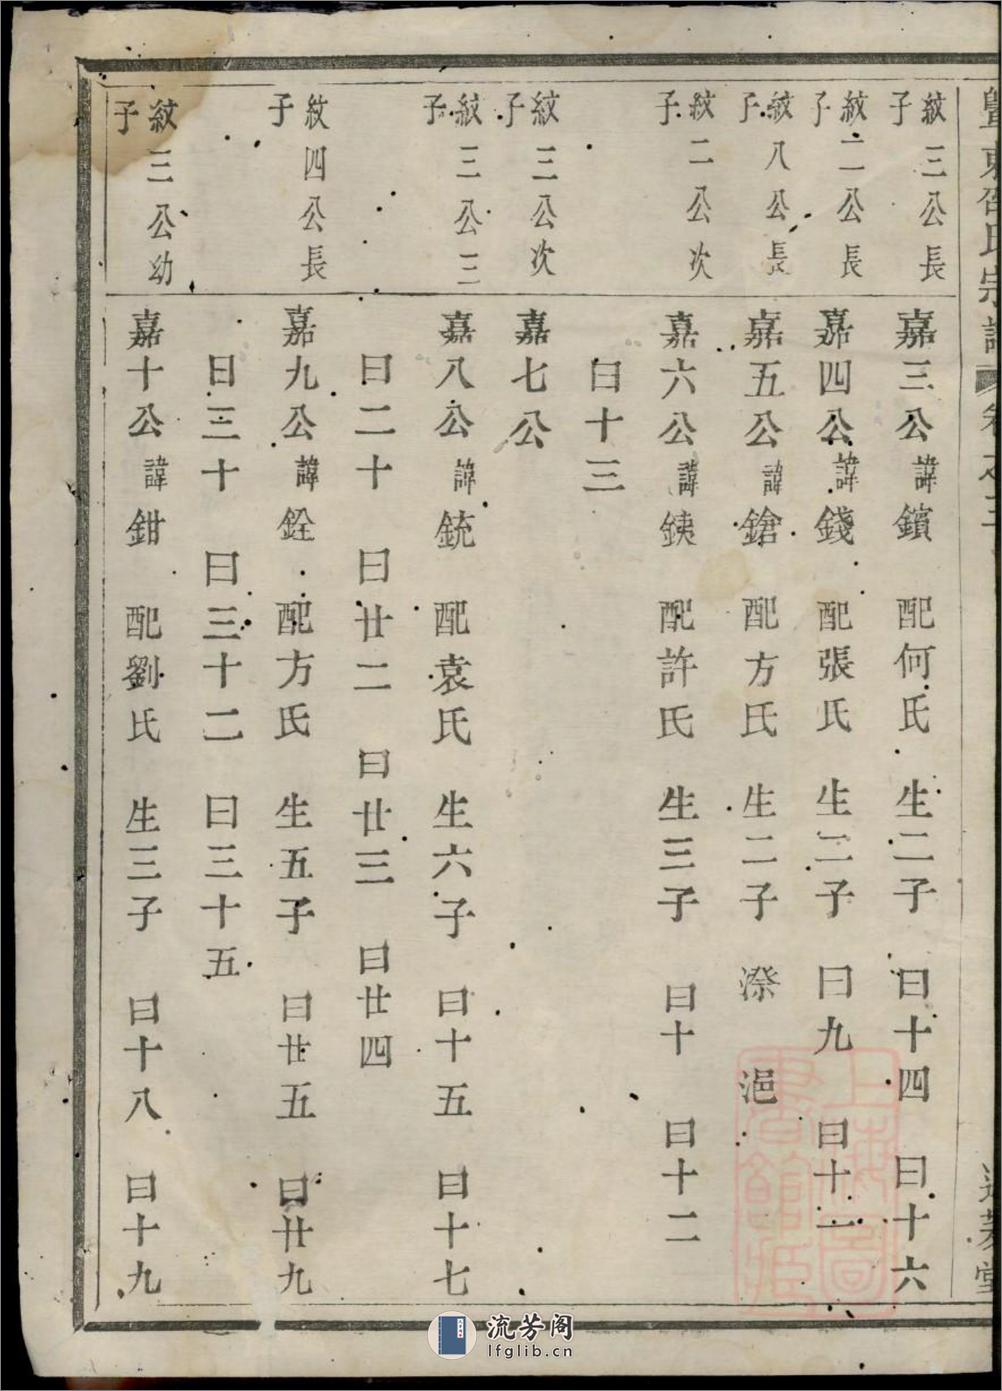 暨東邵氏宗譜 卷之三
紋三公長子 嘉三公諱鑌 配何氏 生二子 曰十四 曰十六
紋二公長子 嘉四公諱錢 配張氏 生二子 曰九 曰十一
紋八公長子 嘉五公諱鎗 配方氏 生二子 漈 浥
紋二公次子 嘉六公諱銕 配許氏 生三子 曰十 曰十二
曰十三
紋三公次子 嘉七公
紋三公三子 嘉八公諱銃 配袁氏 生六子 曰十五 曰十七
曰二十 曰廿二 曰廿三 曰廿四
紋四公長子 嘉九公諱銓 配方氏 生五子 曰廿五 曰廿九
曰三十 曰三十二 曰三十五
紋三公幼子 嘉十公諱鉗 配劉氏 生三子 曰十八 曰十九
上海圖書館藏
流芳阁
lfglib.cn